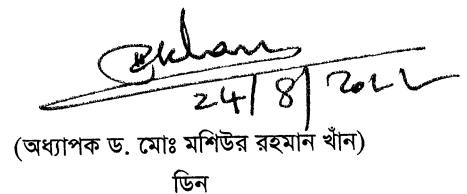 24/8/2022
(অধ্যাপক ড. মোঃ মশিউর রহমান খাঁন)
ডিন